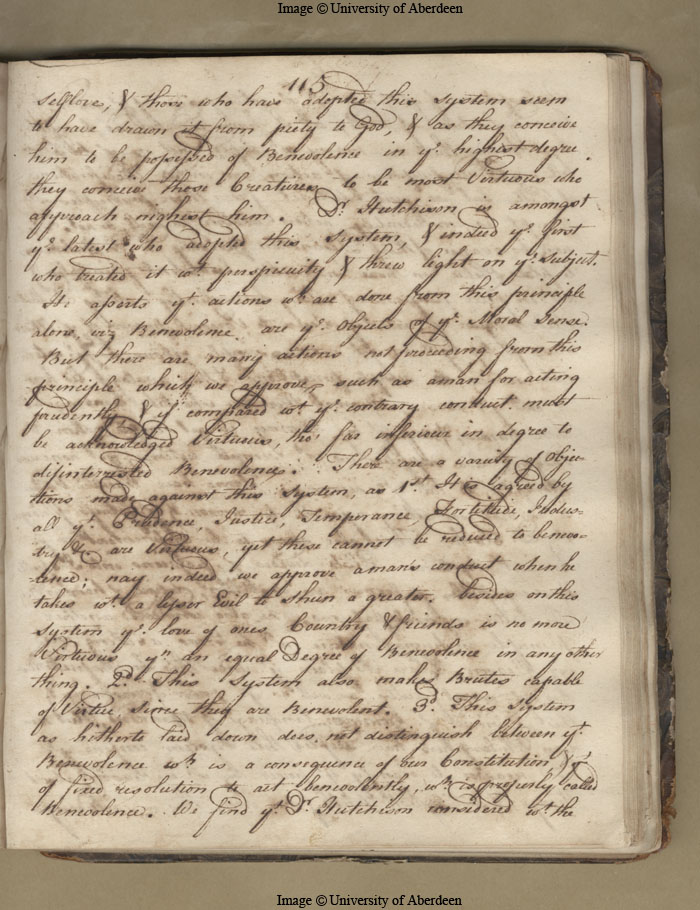 Image © University of Aberdeen
115
selflove, & those who have adopted this system seem
to have drawn it from piety to God, & as they conceive
him to be possessed of Benevolence in yᵉ highest degree
they conceive those Creatures to be most Virtuous who
approach nighest him. Dʳ Hutchison is amongst
yᵉ latest who adopted this System, & indeed yᵉ first
who treated it wᵗ perspicuity & threw light on yᵉ subject.
He asserts yᵗ actions wᶜ are done from this principle
alone, viz Benevolence are yᵉ Objects of yᵉ Moral Sense.
But there are many actions not proceeding from this
principle which we approve, such as a man for acting
prudently & if compared wᵗ yᵉ contrary conduct must
be acknowledged Virtuous, tho' far inferiour in degree to
disinterested Benevolence. There are a variety of Objec-
tions made against this System, as 1ˢᵗ It is agreed by
all yᵗ Prudence, Justice, Temperance, Fortitude, Indus-
try &c are Virtuous, yet these cannot be reduced to benevo-
-lence; nay indeed we approve a man's conduct when he
takes wᵗ a lesser Evil to shun a greater, besides on this
System yᵉ love of ones Country & friends is no more
Virtuous yⁿ an equal Degree of Benevolence in any other
thing. 2ᵈ This System also makes Brutes capable
of Virtue since they are Benevolent. 3ᵈ This System
as hitherto laid down does not distinguish between yᵗ
Benevolence wᶜʰ is a consequence of our Constitution & yᵗ
of fixed resolution to act benevolently, wᶜʰ is properly called
Benevolence. We find yᵗ Dʳ Hutchison considered wᵗ the
Image © University of Aberdeen